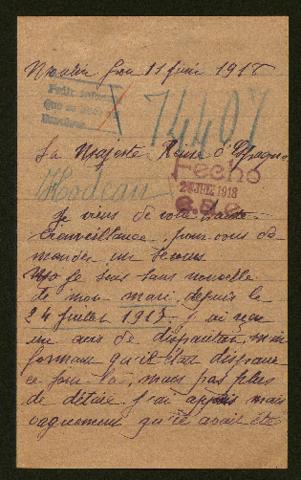 11 juin 1918
74407
Sa Majesté Reine d'Espagne
Fecho
24 JUL 1918
Hodeau
Je viens de votre haute
bienveillance, pour vous de
mander un secours
Je suis sans nouvelle
de mon mari depuis le
24 juillet 1917 j'ai reçu
un avis de disparition, m'in
formant qu'il était disparu
ce jour là, mais pas plus
de détail j'ai appris mais
vaguement qu'il avait été